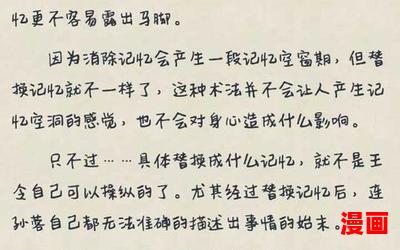 忆更不容易露出马脚。
因为消除记忆会产生一段记忆空窗期，但替
换记忆就不一样了，这种术法并不会让人产生记
忆空洞的感觉，也不会对身心造成什么影响。
只不过……具体替换成什么记忆，就不是王
令自己可以操纵的了。尤其经过替换记忆后，连
孙蓉自己都无法准确的描述出事情的始末。
漫画